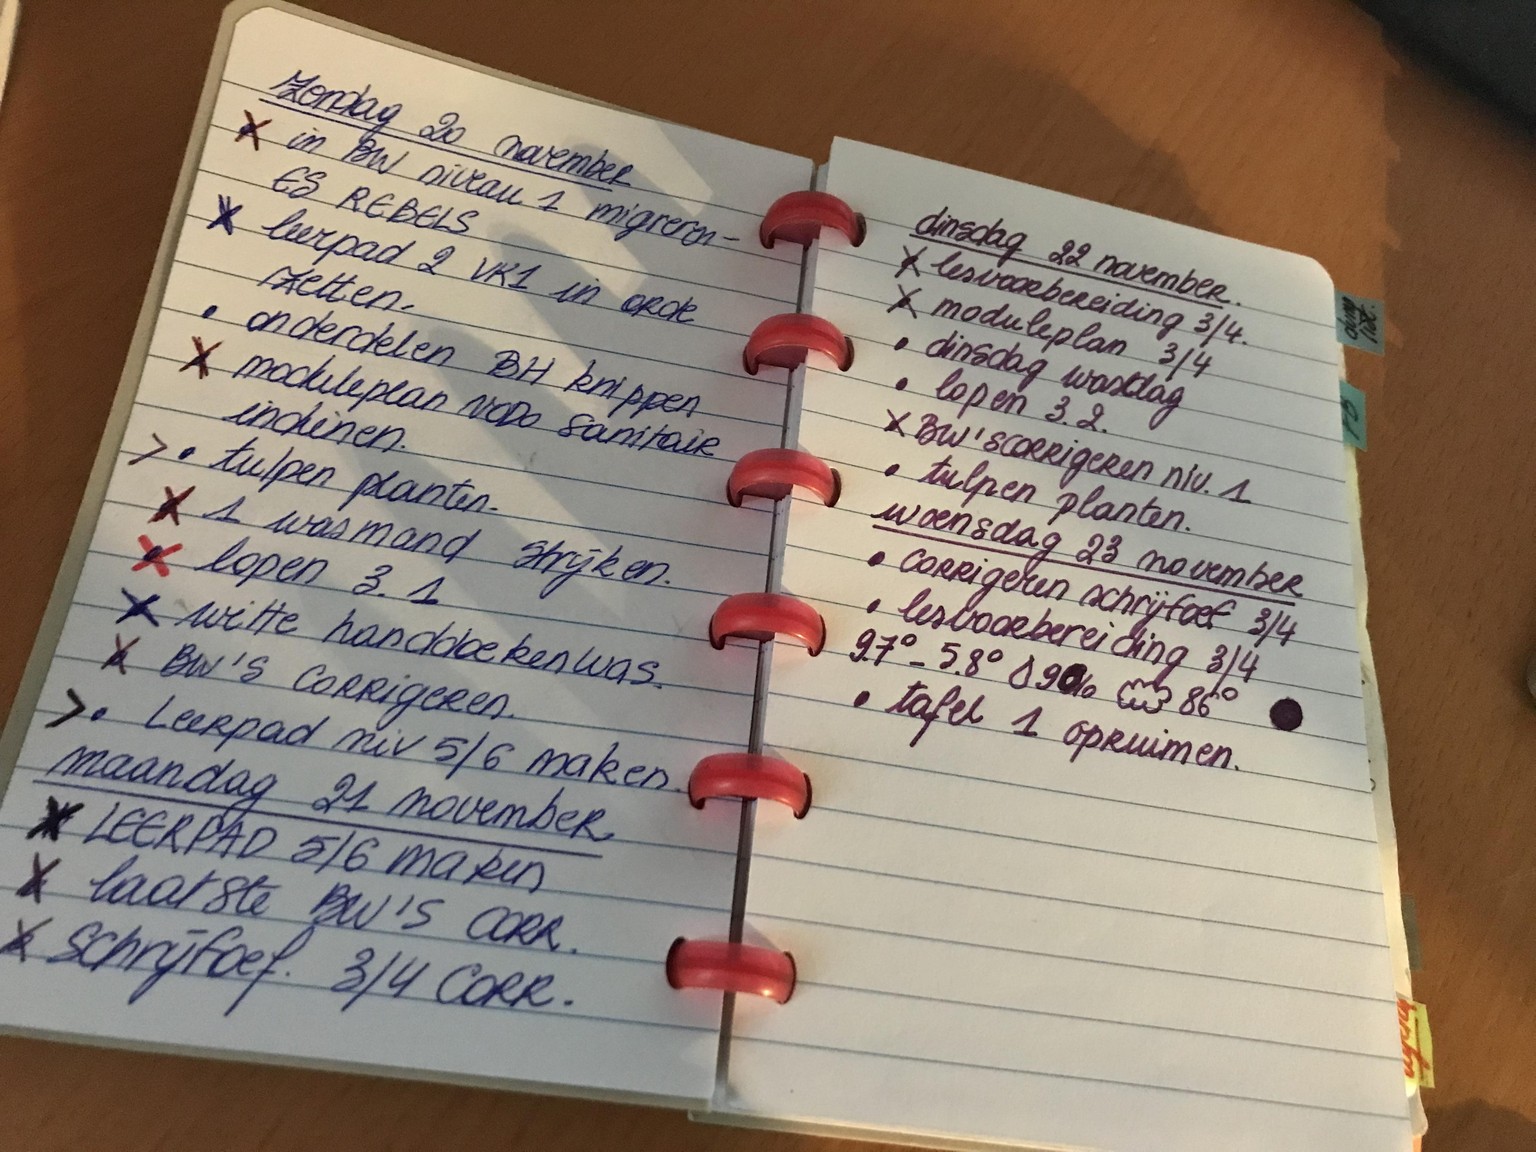 Zondag 20 november
x in BW niveau 1 migreren -
ES REBELS
x leerpad 2 VK1 in orde
zetten.
• onderdelen BH knippen
x moduleplan voDo Sanitair
indienen.
> • tulpen planten.
x 1 wasmand strijken.
x lopen 3.1
x witte handdoekenwas.
x BW'S corrigeren.
> • Leerpad niv 5/6 maken.
maandag 21 november
x LEERPAD 5/6 maken
x laatste BW'S CORR.
x Schrijfoef. 3/4 CORR.
dinsdag 22 november.
x lesvoorbereiding 3/4.
x moduleplan 3/4
• dinsdag wasdag
• lopen 3.2.
x BW'S corrigeren niv. 1
• tulpen planten.
woensdag 23 november
• corrigeren schrijfoef 3/4
• lesvoorbereiding 3/4
9.7° - 5.8° 90% 86°
• tafel 1 opruimen.